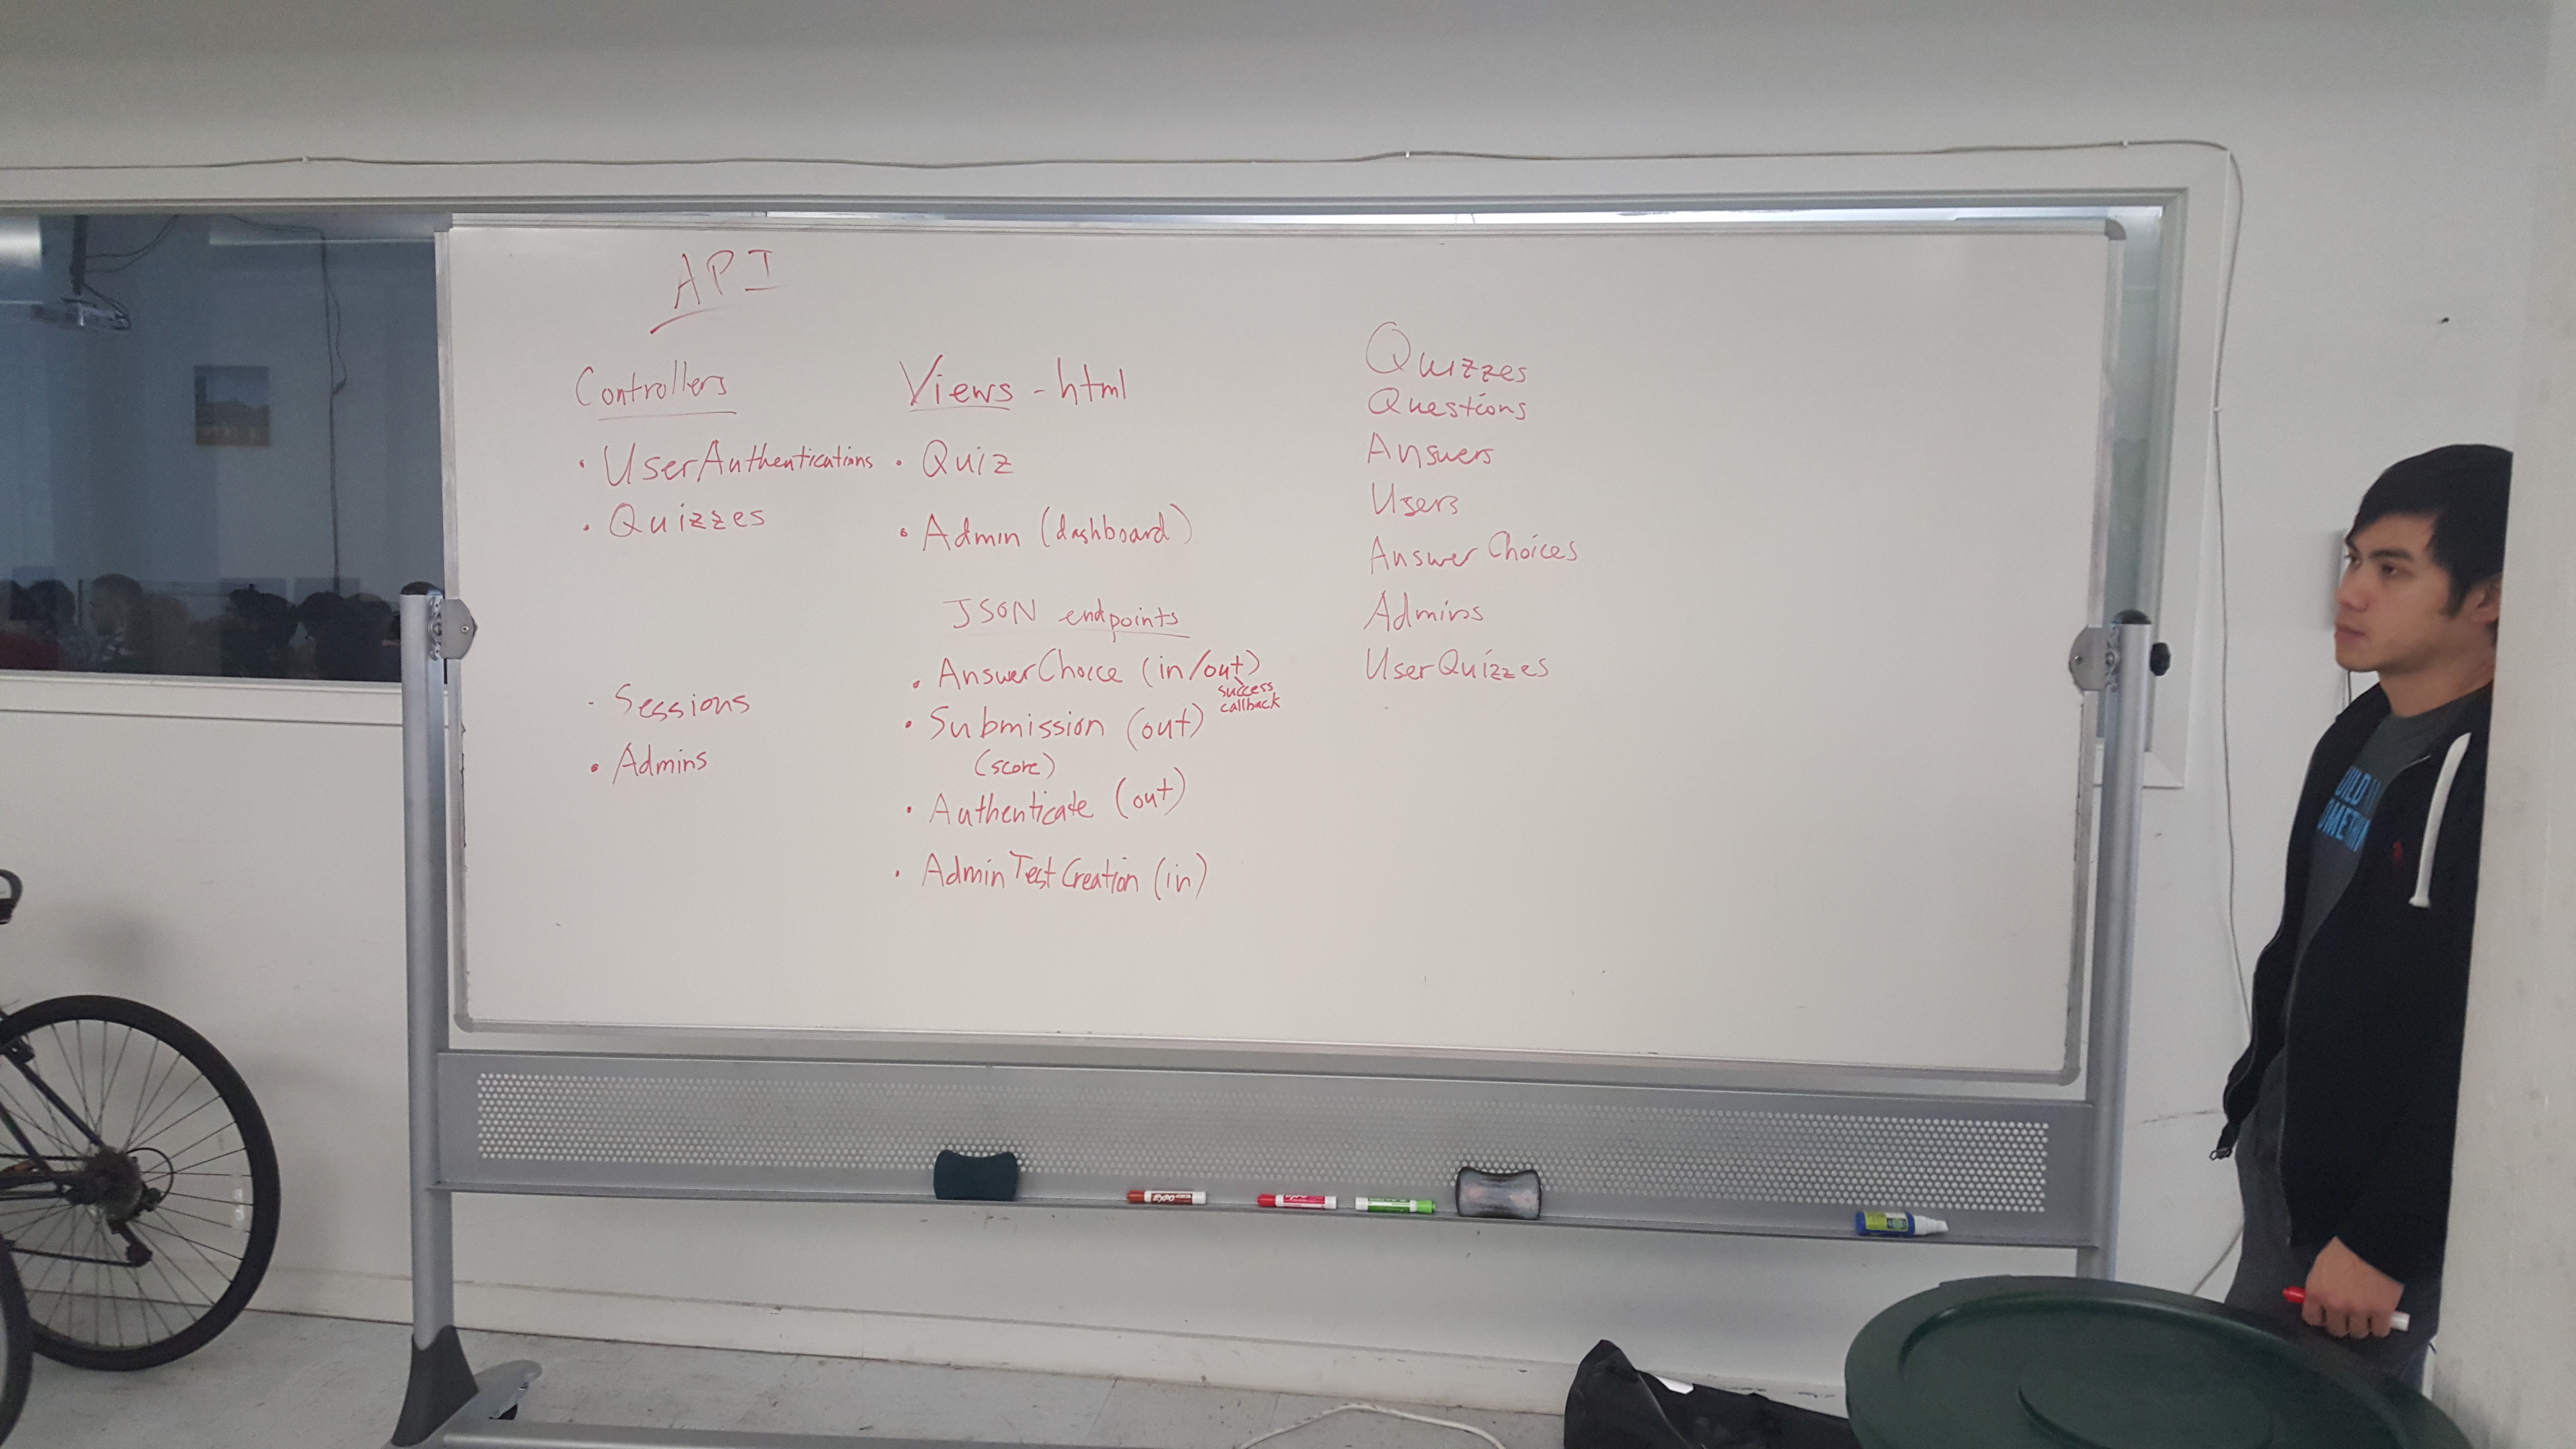 API
Controllers
• UserAuthentications
• Quizzes
- Sessions
• Admins
Views - html
• Quiz
• Admin (dashboard)
JSON endpoints
• AnswerChoice (in/out)
success
callback
• Submission (out)
(score)
• Authenticate (out)
• AdminTestCreation (in)
Quizzes
Questions
Answers
Users
AnswerChoices
Admins
UserQuizzes
EXPO